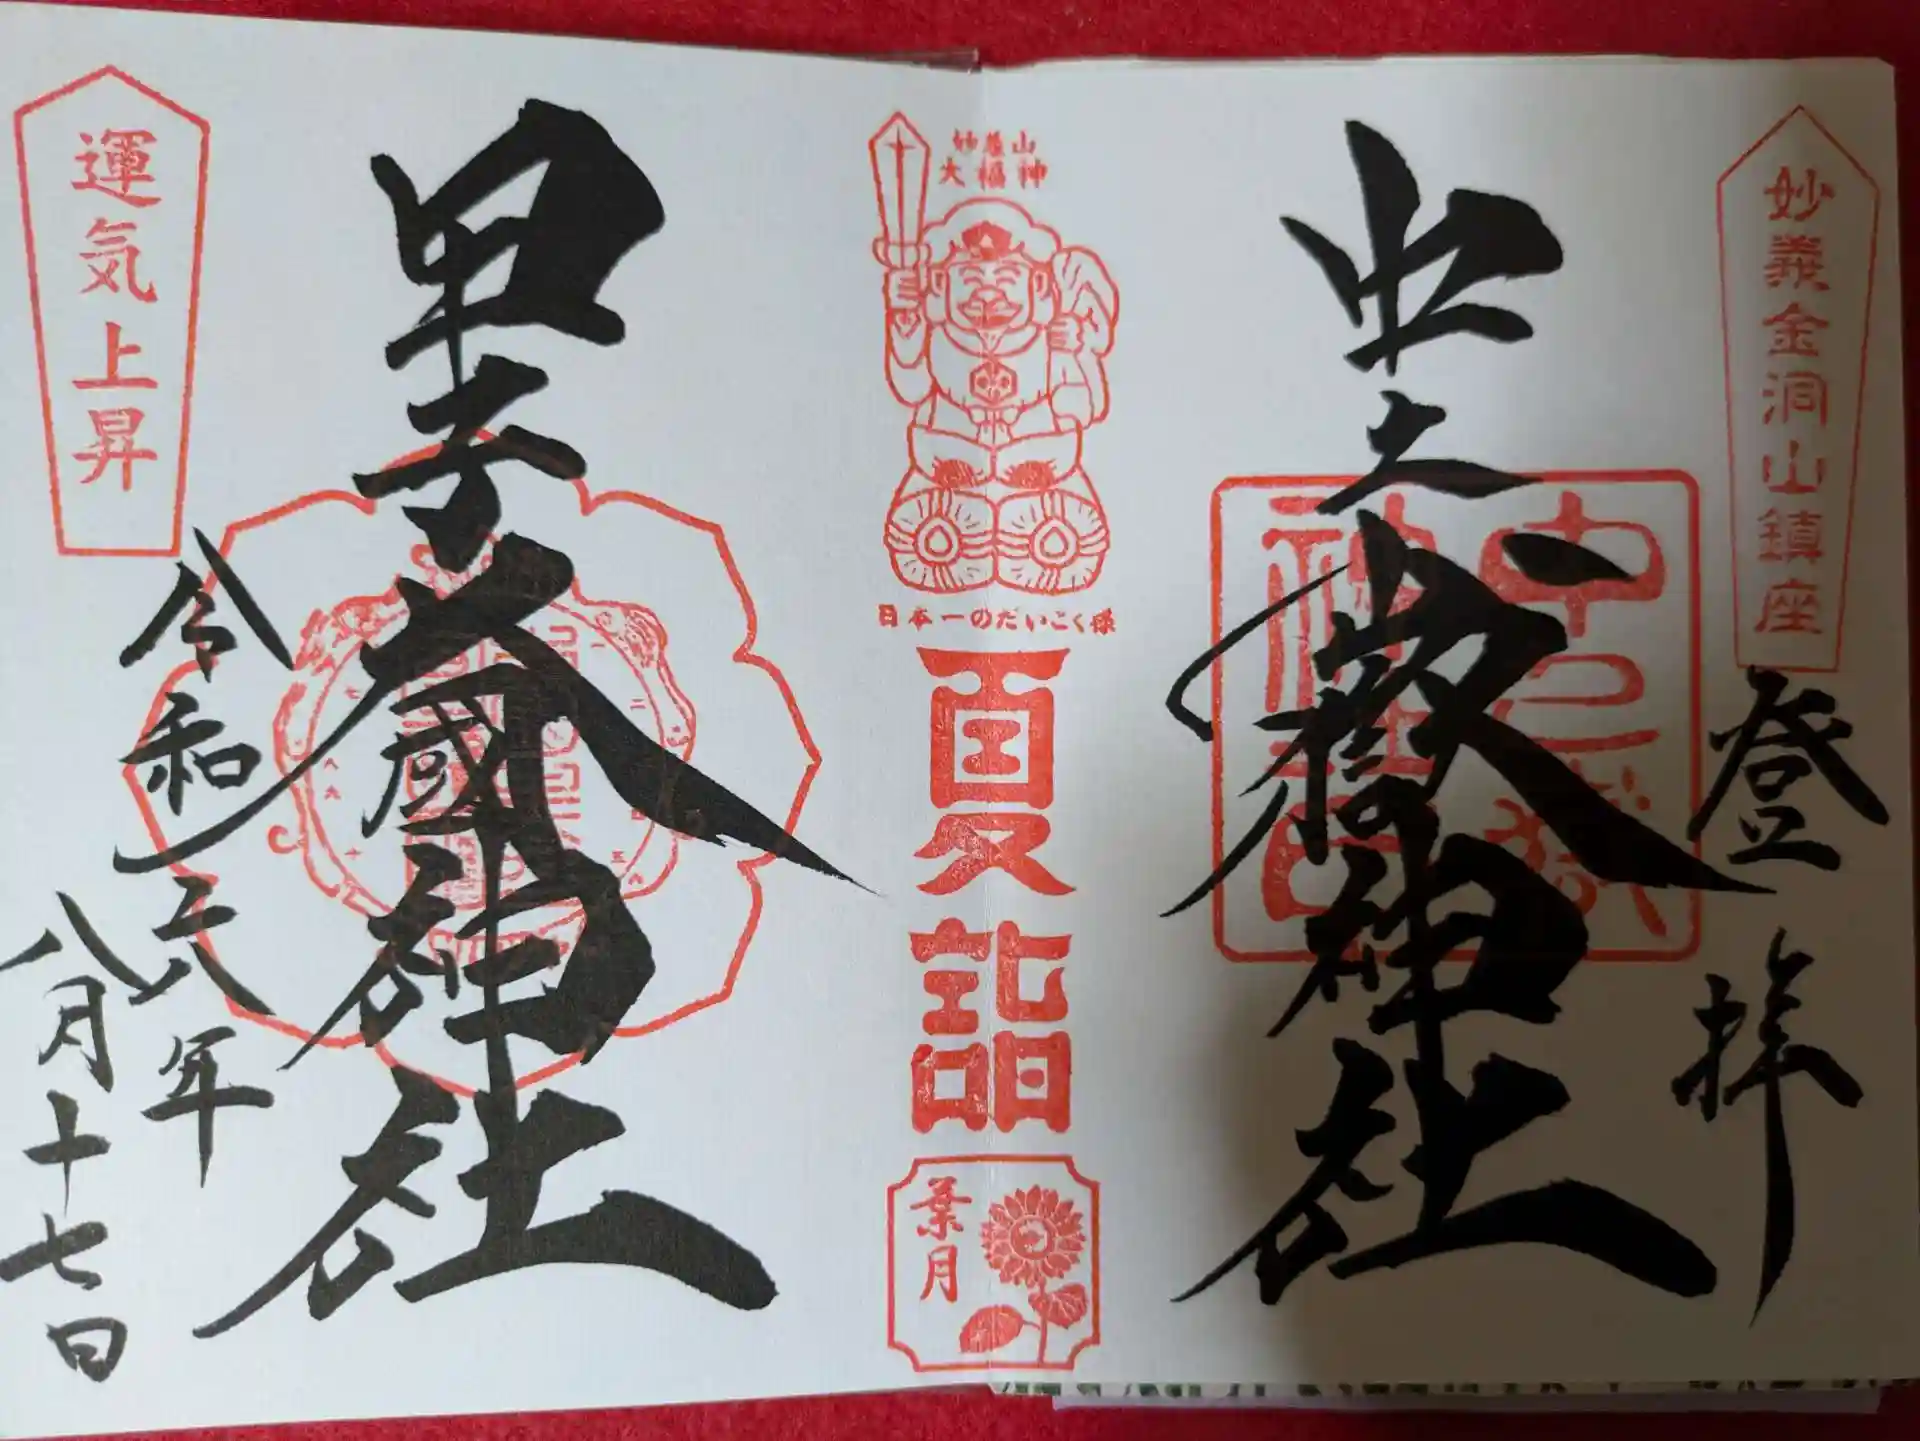 妙義金洞山鎮座
登拝
中之嶽神社
妙義山
大福神
日本一のだいこく様
夏詣
葉月
甲子大國神社
運気上昇
令和六年
八月十七日